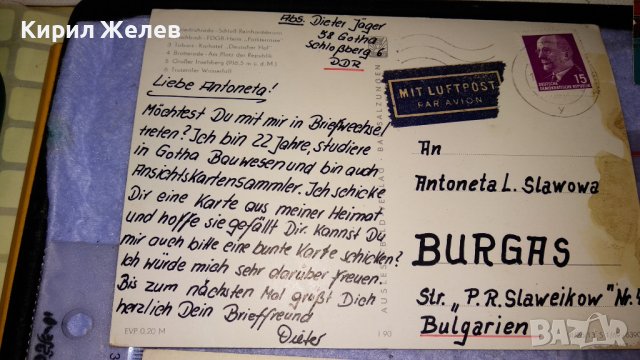 Кирил Желев
Abs. Dieter Jäger
58 Gotha
Schloßberg
DDR
3 Tabarz - Kurhotel „Deutscher Hof"
4 Brotterode - Am Platz der Republik
5 Großer Inselsberg (916,5 m ü. d. M.)
6 Trusetaler Wasserfall
Liebe Antoneta!
Möchtest Du mit mir in Briefwechsel
treten? Ich bin 22 Jahre, studiere
in Gotha Bauwesen und bin auch
Ansichtskartensammler. Ich schicke
Dir eine Karte aus meiner Heimat
und hoffe sie gefällt Dir. Kannst Du
mir auch bitte eine bunte Karte schicken?
Ich würde mich sehr darüber freuen.
Bis zum nächsten Mal grüßt Dich
herzlich Dein Brieffreund
Dieter
EVP 0,20 M
MIT LUFTPOST
PAR AVION
15
DEUTSCHE
DEMOKRATISCHE REPUBLIK
An
Antoneta L. Slawowa
BURGAS
Str. „P. R. Slaweikow" Nr.
Bulgarien
bazar